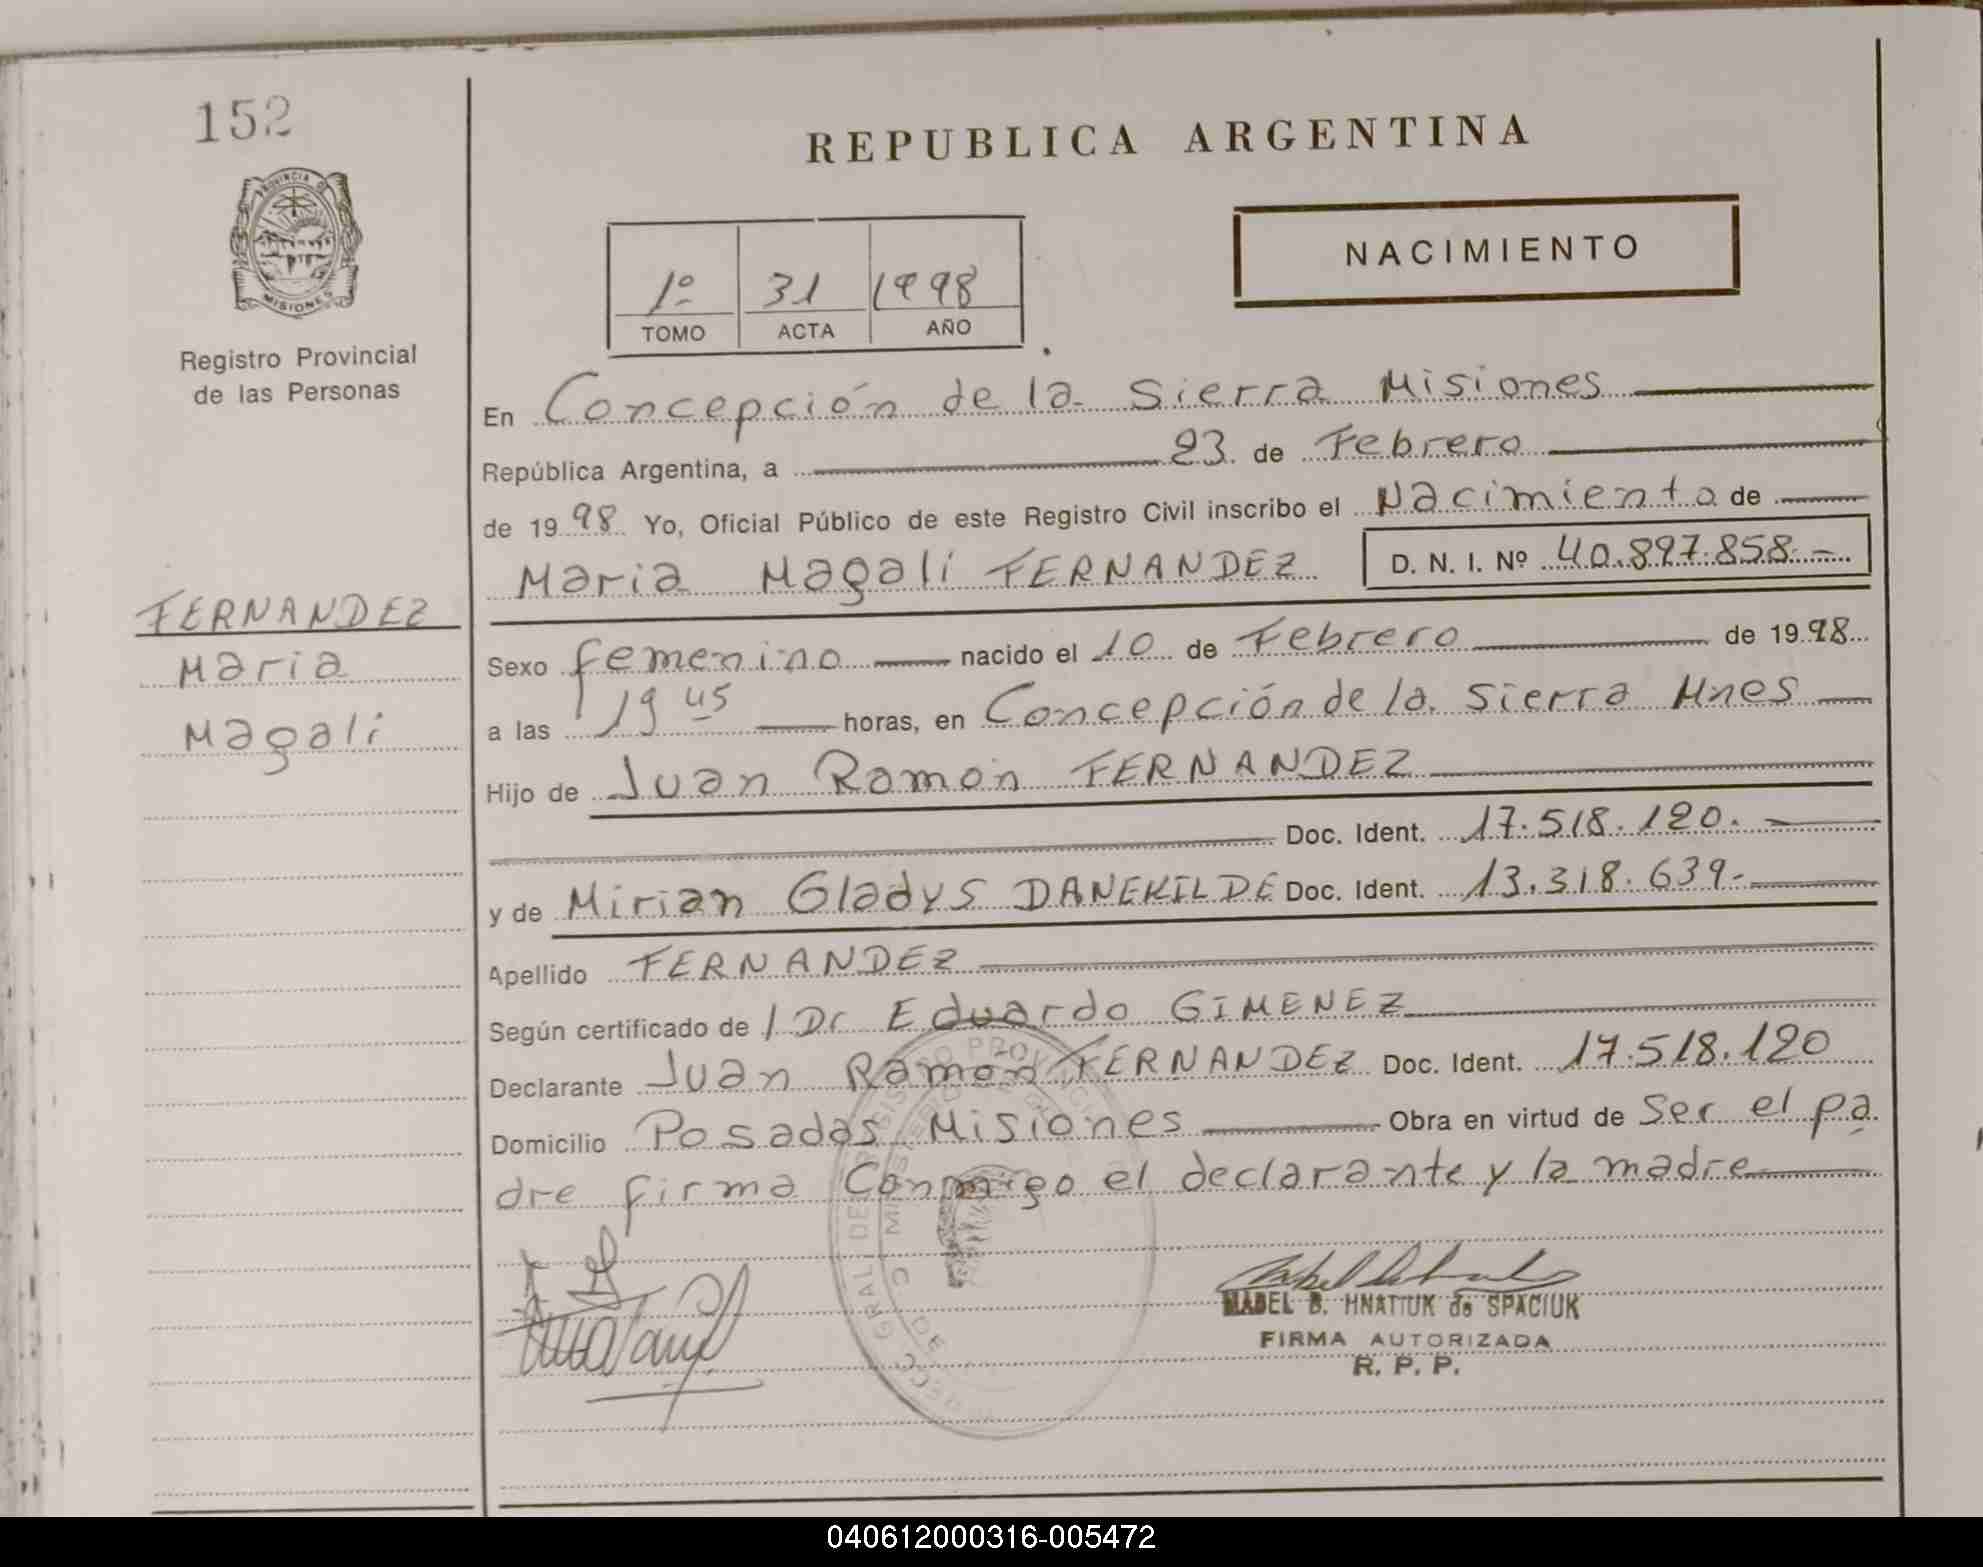 152
PROVINCIA DE
MISIONES
Registro Provincial
de las Personas
REPUBLICA ARGENTINA
NACIMIENTO
1º 31 1998
TOMO ACTA AÑO
En Concepción de la Sierra Misiones
República Argentina, a 23 de Febrero
de 1998 Yo, Oficial Público de este Registro Civil inscribo el Nacimiento de
Maria Magali FERNANDEZ D. N. I. Nº 40.897.858.-
FERNANDEZ
Maria
Magali
Sexo femenino nacido el 10 de Febrero de 1998
a las 19 45 horas, en Concepción de la Sierra Mnes
Hijo de Juan Ramón FERNANDEZ
Doc. Ident. 17.518.120.-
y de Mirian Gladys DANEKILDE Doc. Ident. 13.318.639.-
Apellido FERNANDEZ
Según certificado de / Dr Eduardo GIMENEZ
Declarante Juan Ramon FERNANDEZ Doc. Ident. 17.518.120
Domicilio Posadas Misiones Obra en virtud de Ser el pa
dre firma Conmigo el declarante y la madre
MABEL B. HNATIUK de SPACIUK
FIRMA AUTORIZADA
R. P. P.
040612000316-005472